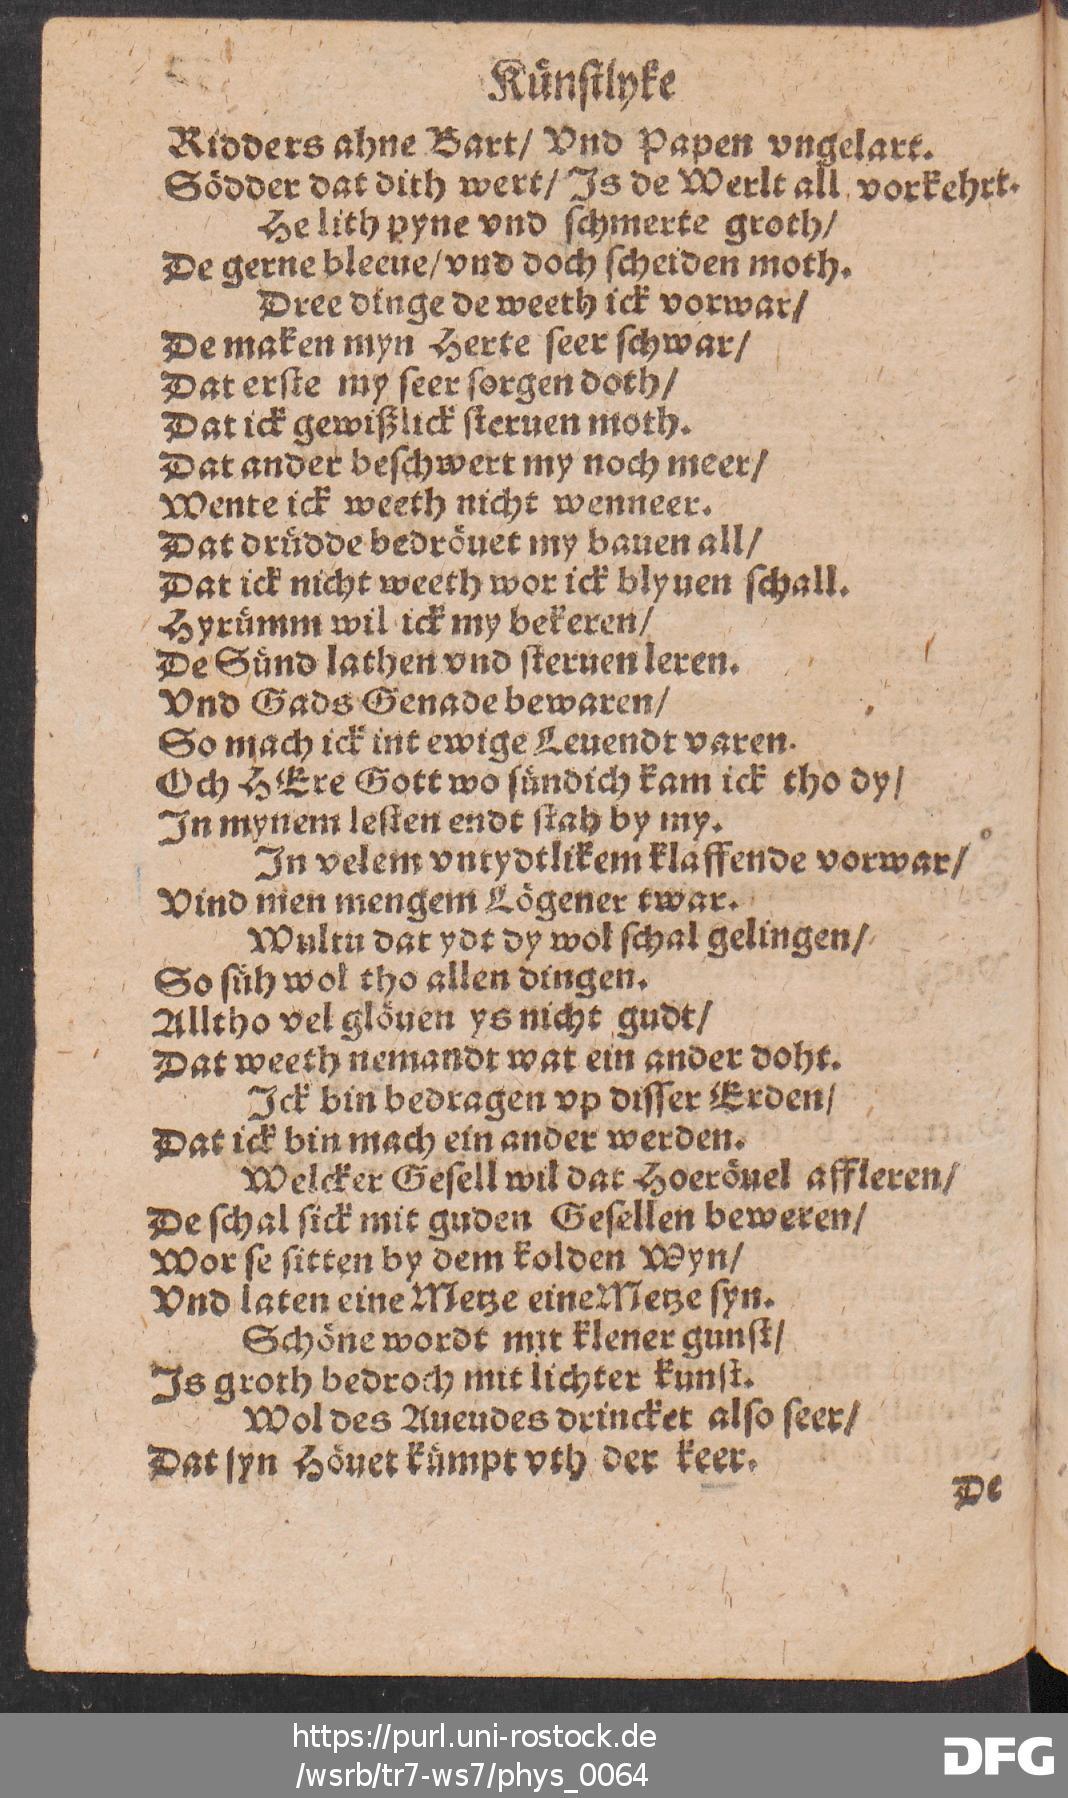 Künstlyke
Ridders ahne Bart/ Vnd Papen vngelart.
Södder dat dith wert/ Is de Werlt all vorkehrt.
He lith pyne vnd schmerte groth/
De gerne bleeue/ vnd doch scheiden moth.
Dree dinge de weeth ick vorwar/
De maken myn Herte seer schwar/
Dat erste my seer sorgen doth/
Dat ick gewißlick steruen moth.
Dat ander beschwert my noch meer/
Wente ick weeth nicht wenneer.
Dat drüdde bedröuet my bauen all/
Dat ick nicht weeth wor ick blyuen schall.
Hyrümm wil ick my bekeren/
De Sünd lathen vnd steruen leren.
Vnd Gads Genade bewaren/
So mach ick int ewige Leuendt varen.
Och HEre Gott wo sündich kam ick tho dy/
In mynem lesten endt stah by my.
In velem vntydtlikem klaffende vorwar/
Vind men mengem Lögener twar.
Wultu dat ydt dy wol schal gelingen/
So süh wol tho allen dingen.
Alltho vel glöuen ys nicht gudt/
Dat weeth nemandt wat ein ander doht.
Ick bin bedragen vp disser Erden/
Dat ick bin mach ein ander werden.
Welcker Gesell wil dat Hoeröuel affleren/
De schal sick mit guden Gesellen beweren/
Wor se sitten by dem kolden Wyn/
Vnd laten eine Metze eine Metze syn.
Schöne wordt mit klener gunst/
Is groth bedroch mit lichter kunst.
Wol des Auendes drincket also seer/
Dat syn Höuet kümpt vth der keer.
De
https://purl.uni-rostock.de
/wsrb/tr7-ws7/phys_0064
DFG